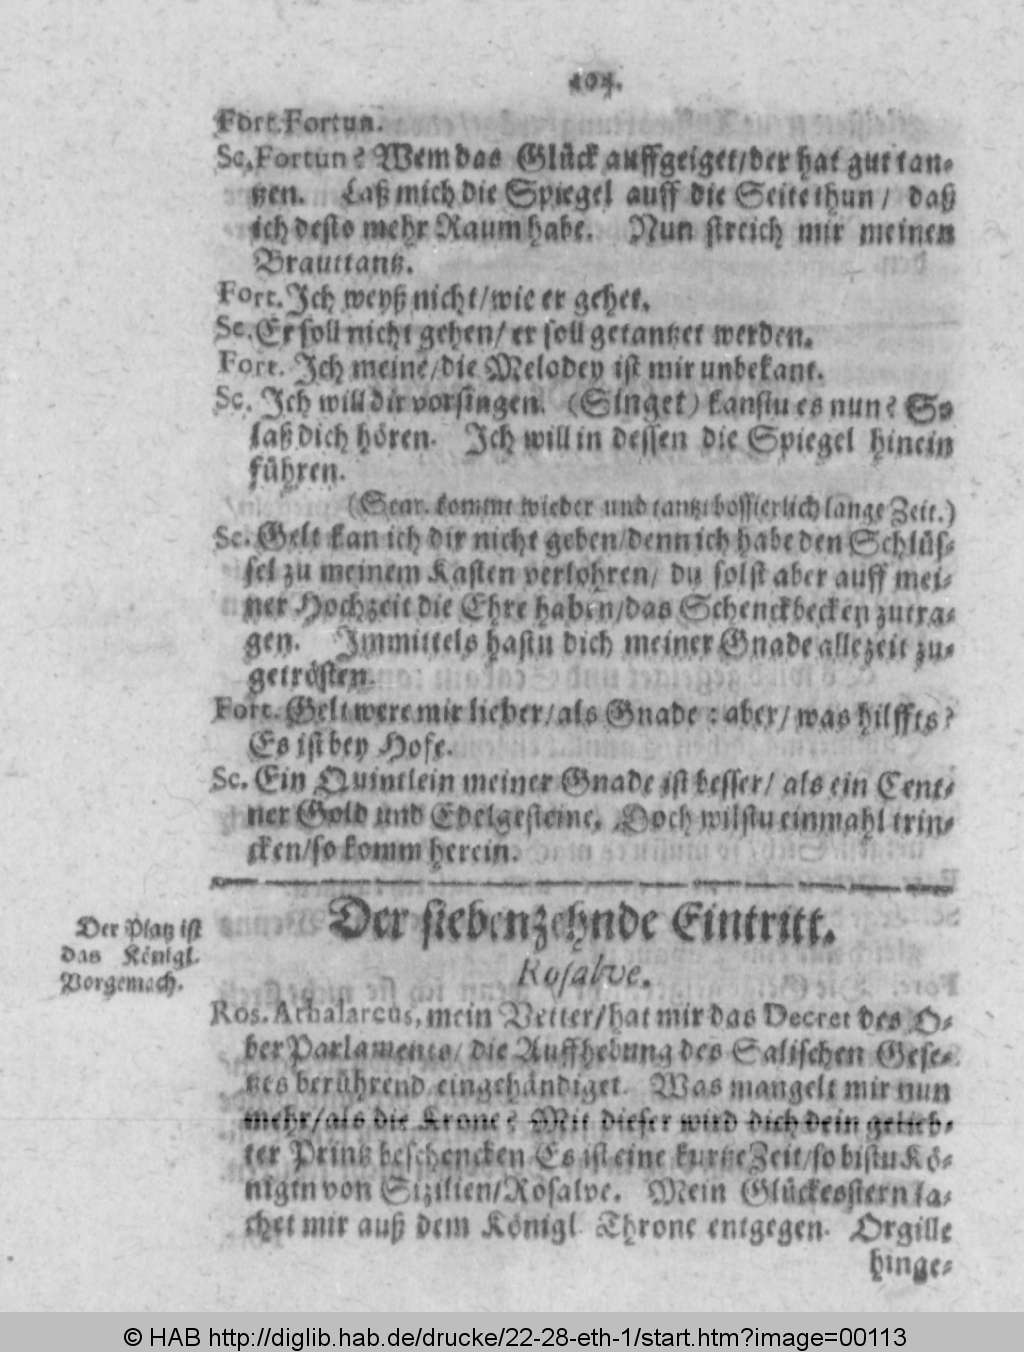 104.
Fort. Fortun.
Sc. Fortun? Wem das Glück auffgeiget/der hat gut tan-
tzen. Laß mich die Spiegel auff die Seite thun/ daß
ich desto mehr Raum habe. Nun streich mir meinen
Brauttantz.
Fort. Ich weyß nicht/wie er gehet.
Sc. Er soll nicht gehen/ er soll getantzet werden.
Fort. Ich meine/die Melodey ist mir unbekant.
Sc. Ich will dir vorsingen. (Singet) kanstu es nun? So
laß dich hören. Ich will in dessen die Spiegel hinein
führen.
(Scar. kommt wieder und tantzt bossierlich lange Zeit.)
Sc. Gelt kan ich dir nicht geben/denn ich habe den Schlüs-
sel zu meinem Kasten verlohren/ du solst aber auff mei-
ner Hochzeit die Ehre haben/das Schenckbecken zutra-
gen. Immittels hastu dich meiner Gnade allezeit zu-
getrösten.
Fort. Gelt were mir lieber/als Gnade: aber/ was hilffts?
Es ist bey Hofe.
Sc. Ein Quintlein meiner Gnade ist besser/ als ein Cent-
ner Gold und Edelgesteine. Doch wilstu einmahl trin-
cken/so komm herein.
Der siebenzehnde Eintritt.
Der Platz ist
das Königl.
Vorgemach.
Rosalve.
Ros. Athalarcus, mein Vetter/hat mir das Decret des O-
ber Parlaments/ die Auffhebung des Salischen Gese-
tzes berührend eingehändiget. Was mangelt mir nun
mehr/als die Krone? Mit dieser wird dich dein gelieb-
ter Printz beschencken Es ist eine kurtze Zeit/so bistu Kö-
nigin von Sizilien/Rosalve. Mein Glückesstern la-
chet mir auß dem Königl. Throne entgegen. Orgille
hinge-
© HAB http://diglib.hab.de/drucke/22-28-eth-1/start.htm?image=00113